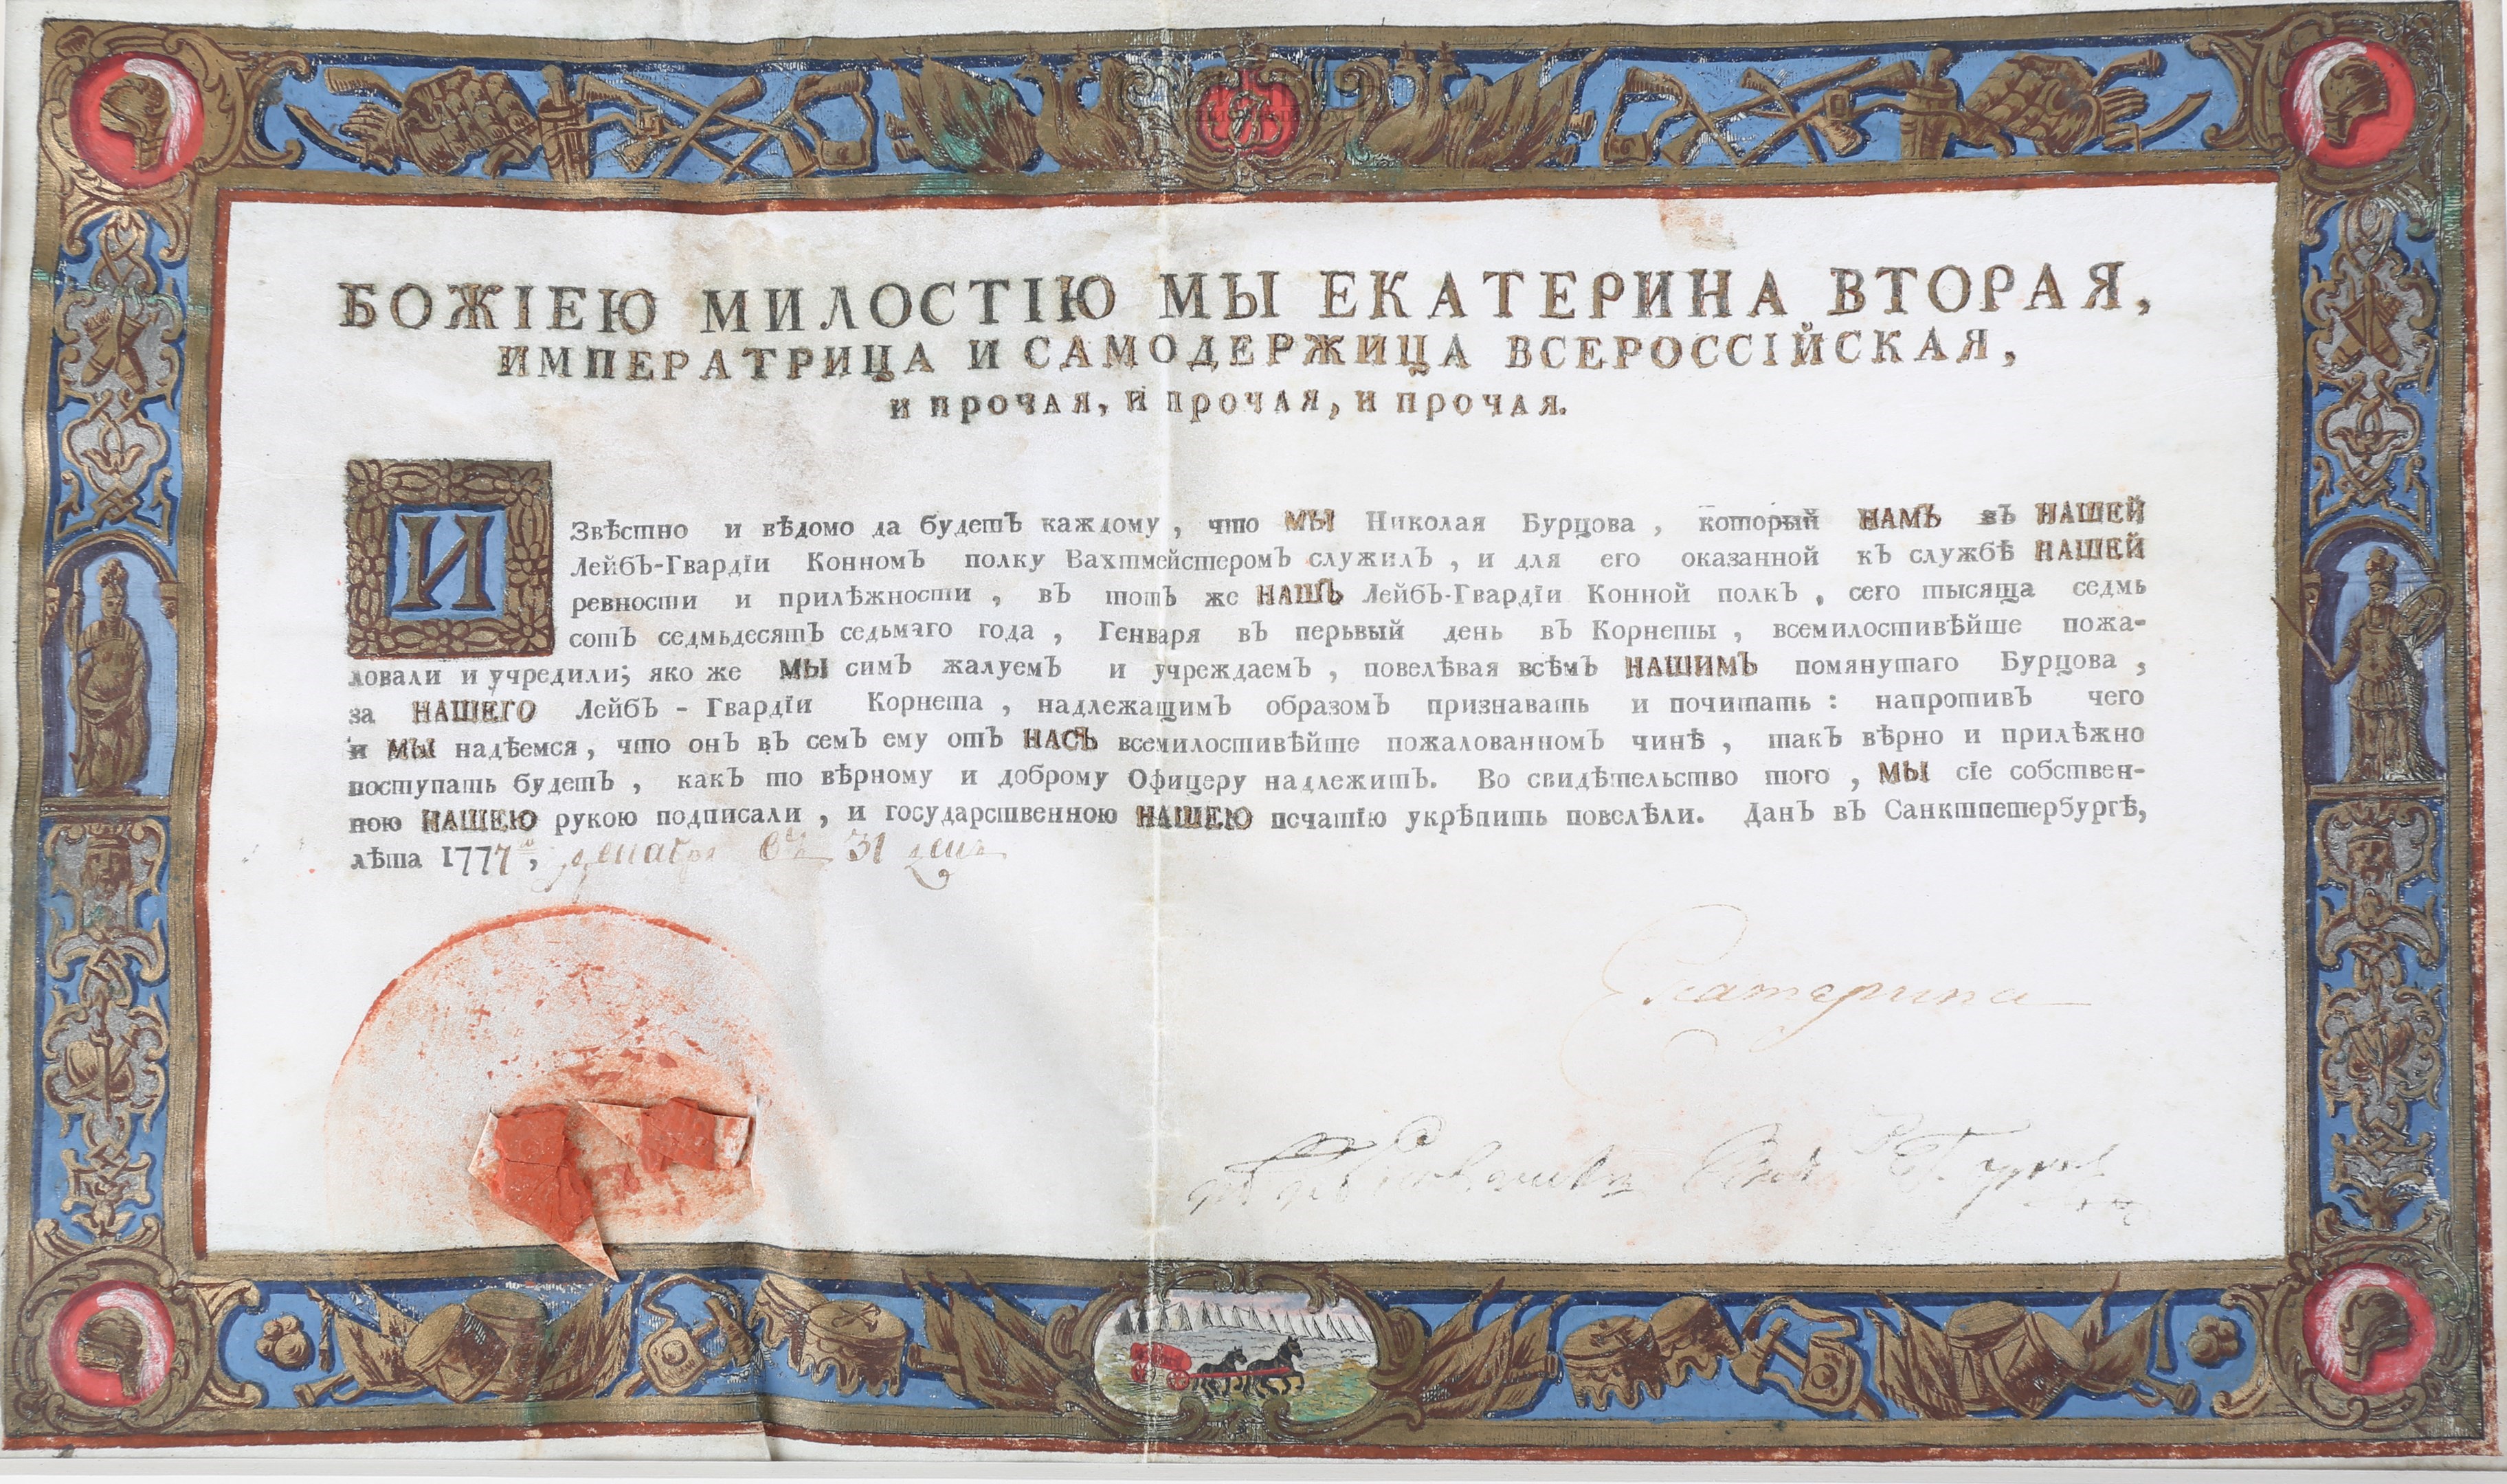 БОЖІЕЮ МИЛОСТІЮ МЫ ЕКАТЕРИНА ВТОРАЯ,
ИМПЕРАТРИЦА И САМОДЕРЖИЦА ВСЕРОССІЙСКАЯ,
И ПРОЧАЯ, И ПРОЧАЯ, И ПРОЧАЯ.
ИЗвѣстно и вѣдомо да будетъ каждому, что МЫ Николая Бурцова, который НАМЪ въ НАШЕЙ
Лейбъ-Гвардіи Конномъ полку Вахтмейстеромъ служилъ, и для его оказанной къ службѣ НАШЕЙ
ревности и прилѣжности, въ тотъ же НАШЪ Лейбъ-Гвардіи Конной полкъ, сего тысяща седмь
сотъ седмьдесятъ седьмаго года, Генваря въ перьвый день въ Корнеты, всемилостивѣйше пожа-
ловали и учредили; яко же МЫ симъ жалуемъ и учреждаемъ, повелѣвая всѣмъ НАШИМЪ помянутаго Бурцова,
за НАШЕГО Лейбъ-Гвардіи Корнета, надлежащимъ образомъ признавать и почитать: напротивъ чего
и МЫ надѣемся, что онъ въ семъ ему отъ НАСЪ всемилостивѣйше пожалованномъ чинѣ, такъ вѣрно и прилѣжно
поступать будетъ, какъ то вѣрному и доброму Офицеру надлежитъ. Во свидѣтельство того, МЫ сіе собствен-
ною НАШЕЮ рукою подписали, и государственною НАШЕЮ печатію укрѣпить повелѣли. Данъ въ Санктпетербургѣ,
лѣта 1777, декабря въ 31 день
Екатерина